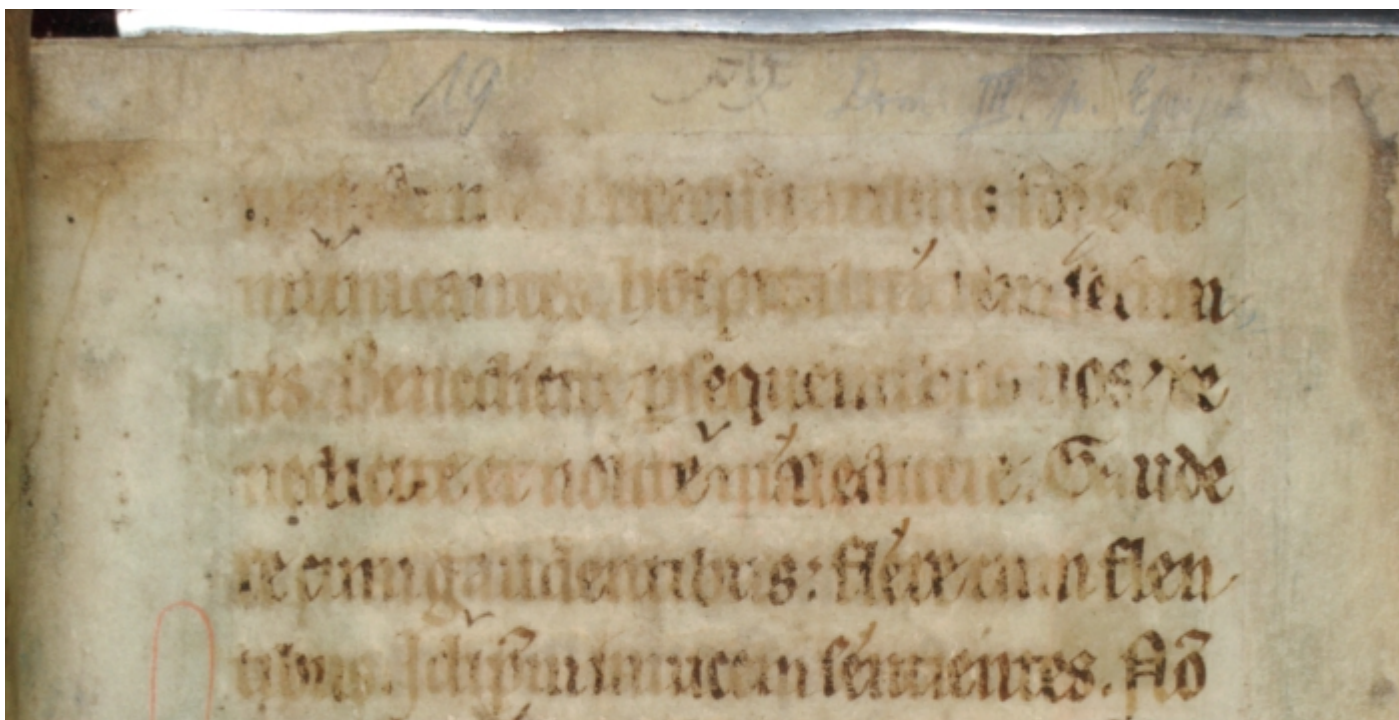 19 Dom. III. p. Epiph
necessitatibus scõrũ cõ
municantes. hospitalitatem sectan
tes. Benedicite ꝑsequentibus uos: be
nedicite et nolite maledicere. Gaude
re cum gaudentibus: flere cum flen
tibus. Idip̃m inuicem sentientes. Nõ